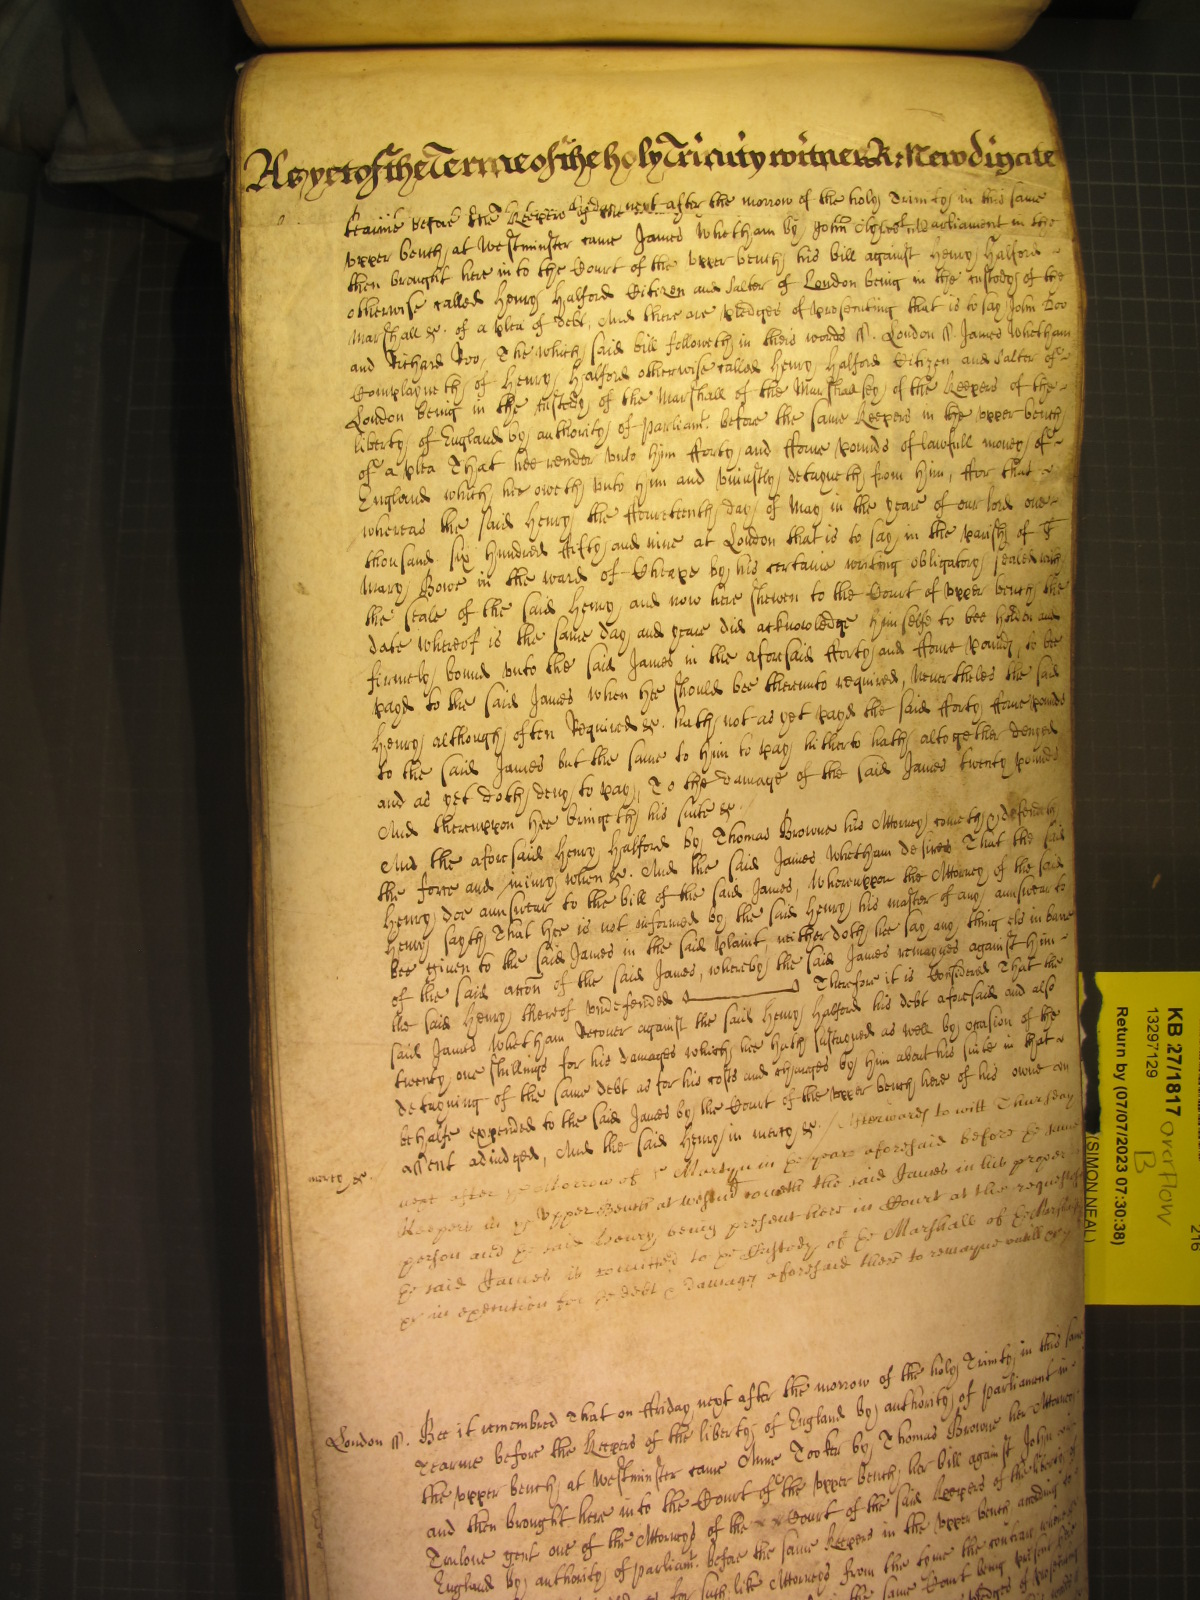 As yet of the Terme of the holy Trinity witnes R: Newdigate
Tearme before the Keepers of the next after the morrow of the holy Trinity in this same
upper bench at Westminster came James Whetham by John Parliament in the
then brought here in to the Court of the upper bench his bill against Henry Halford
otherwise called Henry Halford Citizen and Salter of London being in the custody of the
Marshall &c. of a plea of debt, And there are pledges of prosecuting that is to say John Doo
and Richard Roo, The which said bill followeth in theis words ss. London ss. James Whetham
Complayneth of Henry Halford otherwise called Henry Halford Citizen and Salter of
London being in the custody of the Marshall of the Marshalsey of the Keepers of the
liberty of England by authority of Parliamt. before the same Keepers in the upper bench
of a plea That hee render unto him fforty and ffoure pounds of lawfull money of
England which hee oweth unto him and uniustly detayneth from him, ffor that
whereas the said Henry the ffourteenth day of May in the yeare of our lord one
thousand six hundred fifty and nine at London that is to say in the parish of St
Mary Bowe in the ward of Cheape by his certaine writing obligatory sealed with
the seale of the said Henry and now here shewen to the Court of upper bench the
date whereof is the same day and yeare did acknowledge himselfe to bee holden and
firmely bound unto the said James in the aforesaid fforty and ffoure pounds, to bee
payd to the said James when hee should bee thereunto required, Neverthelес the said
Henry although often Required &c. hath not as yet payd the said fforty ffoure pounds
to the said James but the same to him to pay hitherto hath altogether denyed
and as yet doth deny to pay, To the damage of the said James twenty pounds
And thereuppon hee bringeth his suite &c.
And the aforesaid Henry Halford by Thomas Browne his Attorney cometh & defendeth
the force and iniury when &c. And the said James Whetham desires That the said
Henry doe aunswear to the bill of the said James, Whereuppon the Attorney of the said
Henry sayth That hee is not informed by the said Henry his master of any aunswear to
bee given to the said James in the said plaint, neither doth hee say any thing els in barre
of the said accon of the said James, whereby the said James remaynes against him
the said Henry thereof undefended Therefore it is Considered That the
said James Whetham Recover against the said Henry Halford his debt aforesaid and also
twenty one shillings for his damages which hee hath sustayned as well by occasion of the
detayning of the same debt as for his costs and charges by him about his suite in that
behalfe expended to the said James by the Court of the upper bench here of his owne
assent adiudged, And the said Henry in mercy &c. / Afterwards to witt Thursday
mercy &c.
next after ye Morrow of St Martyn in ye yeare aforesaid before ye same
Keepers in ye Upper Bench at Westmr cometh the said James in his proper
person and ye said Henry being present here in Court at the request of
ye said James is comitted to ye Custody of ye Marshall of ye Marshalsey
in execution for ye debt & damages aforesaid there to remayne untill
London ss. Bee it remembred That on ffriday next after the morrow of the holy Trinity in this same
Tearme before the Keepers of the liberty of England by authority of Parliament in
the upper bench at Westminster came Anne Tooker by Thomas Browne her Attorney
and then brought here in to the Court of the Upper bench her bill against John
gent one of the Attorneys of the Court of the said Keepers of the liberty of
England by authority of Parliamt. before the same Keepers in the upper bench according to
for such like Attorneys from the tyme the contrary whereof
the same Court being present
pledges of prosecuting
KB 27/1817
13297129
Overflow
B
Return by (07/07/2023 07:30:38)
(SIMON NEAL)
216